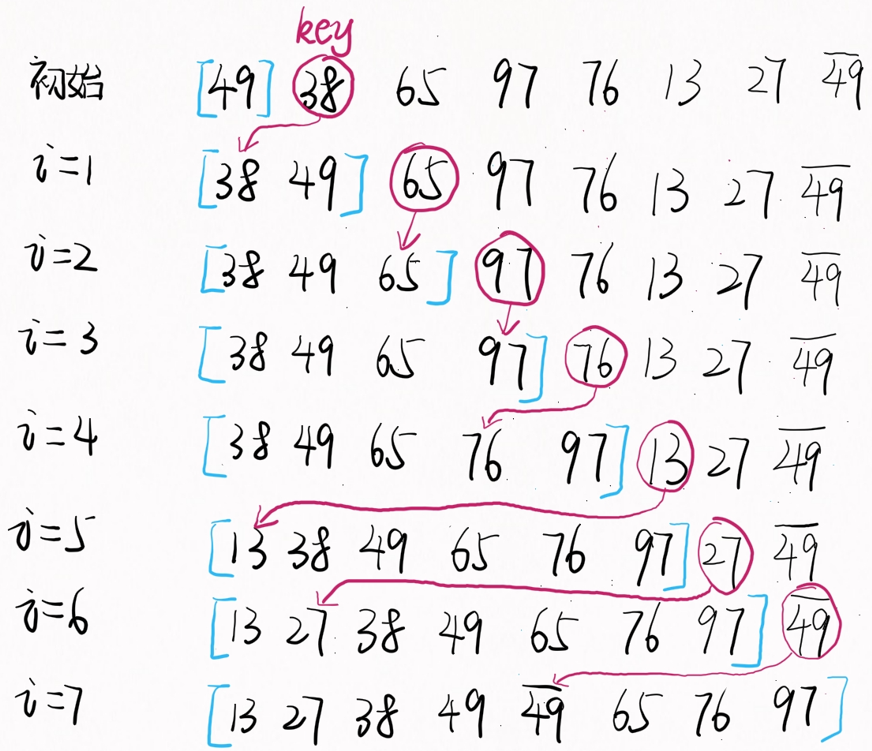 key
初始 [49] 38 65 97 76 13 27 4̅9̅
i=1 [38 49] 65 97 76 13 27 4̅9̅
i=2 [38 49 65] 97 76 13 27 4̅9̅
i=3 [38 49 65 97] 76 13 27 4̅9̅
i=4 [38 49 65 76 97] 13 27 4̅9̅
i=5 [13 38 49 65 76 97] 27 4̅9̅
i=6 [13 27 38 49 65 76 97] 4̅9̅
i=7 [13 27 38 49 4̅9̅ 65 76 97]